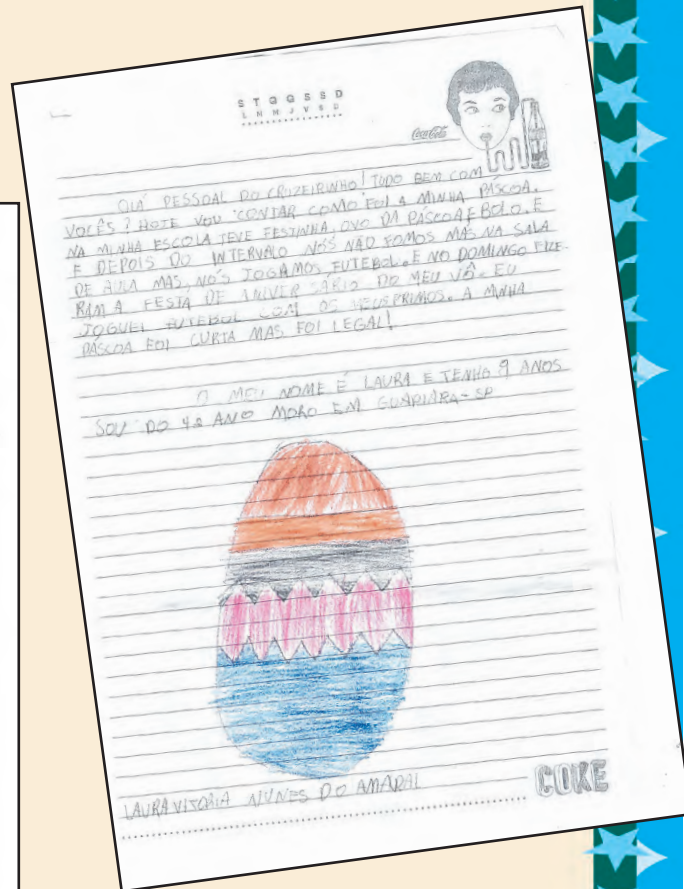 S T Q Q S S D
L M M J V S D
Coca-Cola
OLÁ PESSOAL DO CRUZEIRINHO! TUDO BEM COM
VOCÊS? HOJE VOU CONTAR COMO FOI A MINHA PÁSCOA.
NA MINHA ESCOLA TEVE FESTINHA, OVO DA PÁSCOA E BOLO. E
E DEPOIS DO INTERVALO NÓS NÃO FOMOS MAS NA SALA
DE AULA MAS, NÓS JOGAMOS FUTEBOL. E NO DOMINGO FIZE-
RAM A FESTA DE ANIVERSÁRIO DO MEU VÔ. EU
JOGUEI FUTEBOL COM OS MEUS PRIMOS. A MINHA
PÁSCOA FOI CURTA MAS FOI LEGAL!
O MEU NOME É LAURA E TENHO 9 ANOS
SOU DO 4º ANO MORO EM GUAPIARA-SP
LAURA VITÓRIA NUNES DO AMARAL
COKE